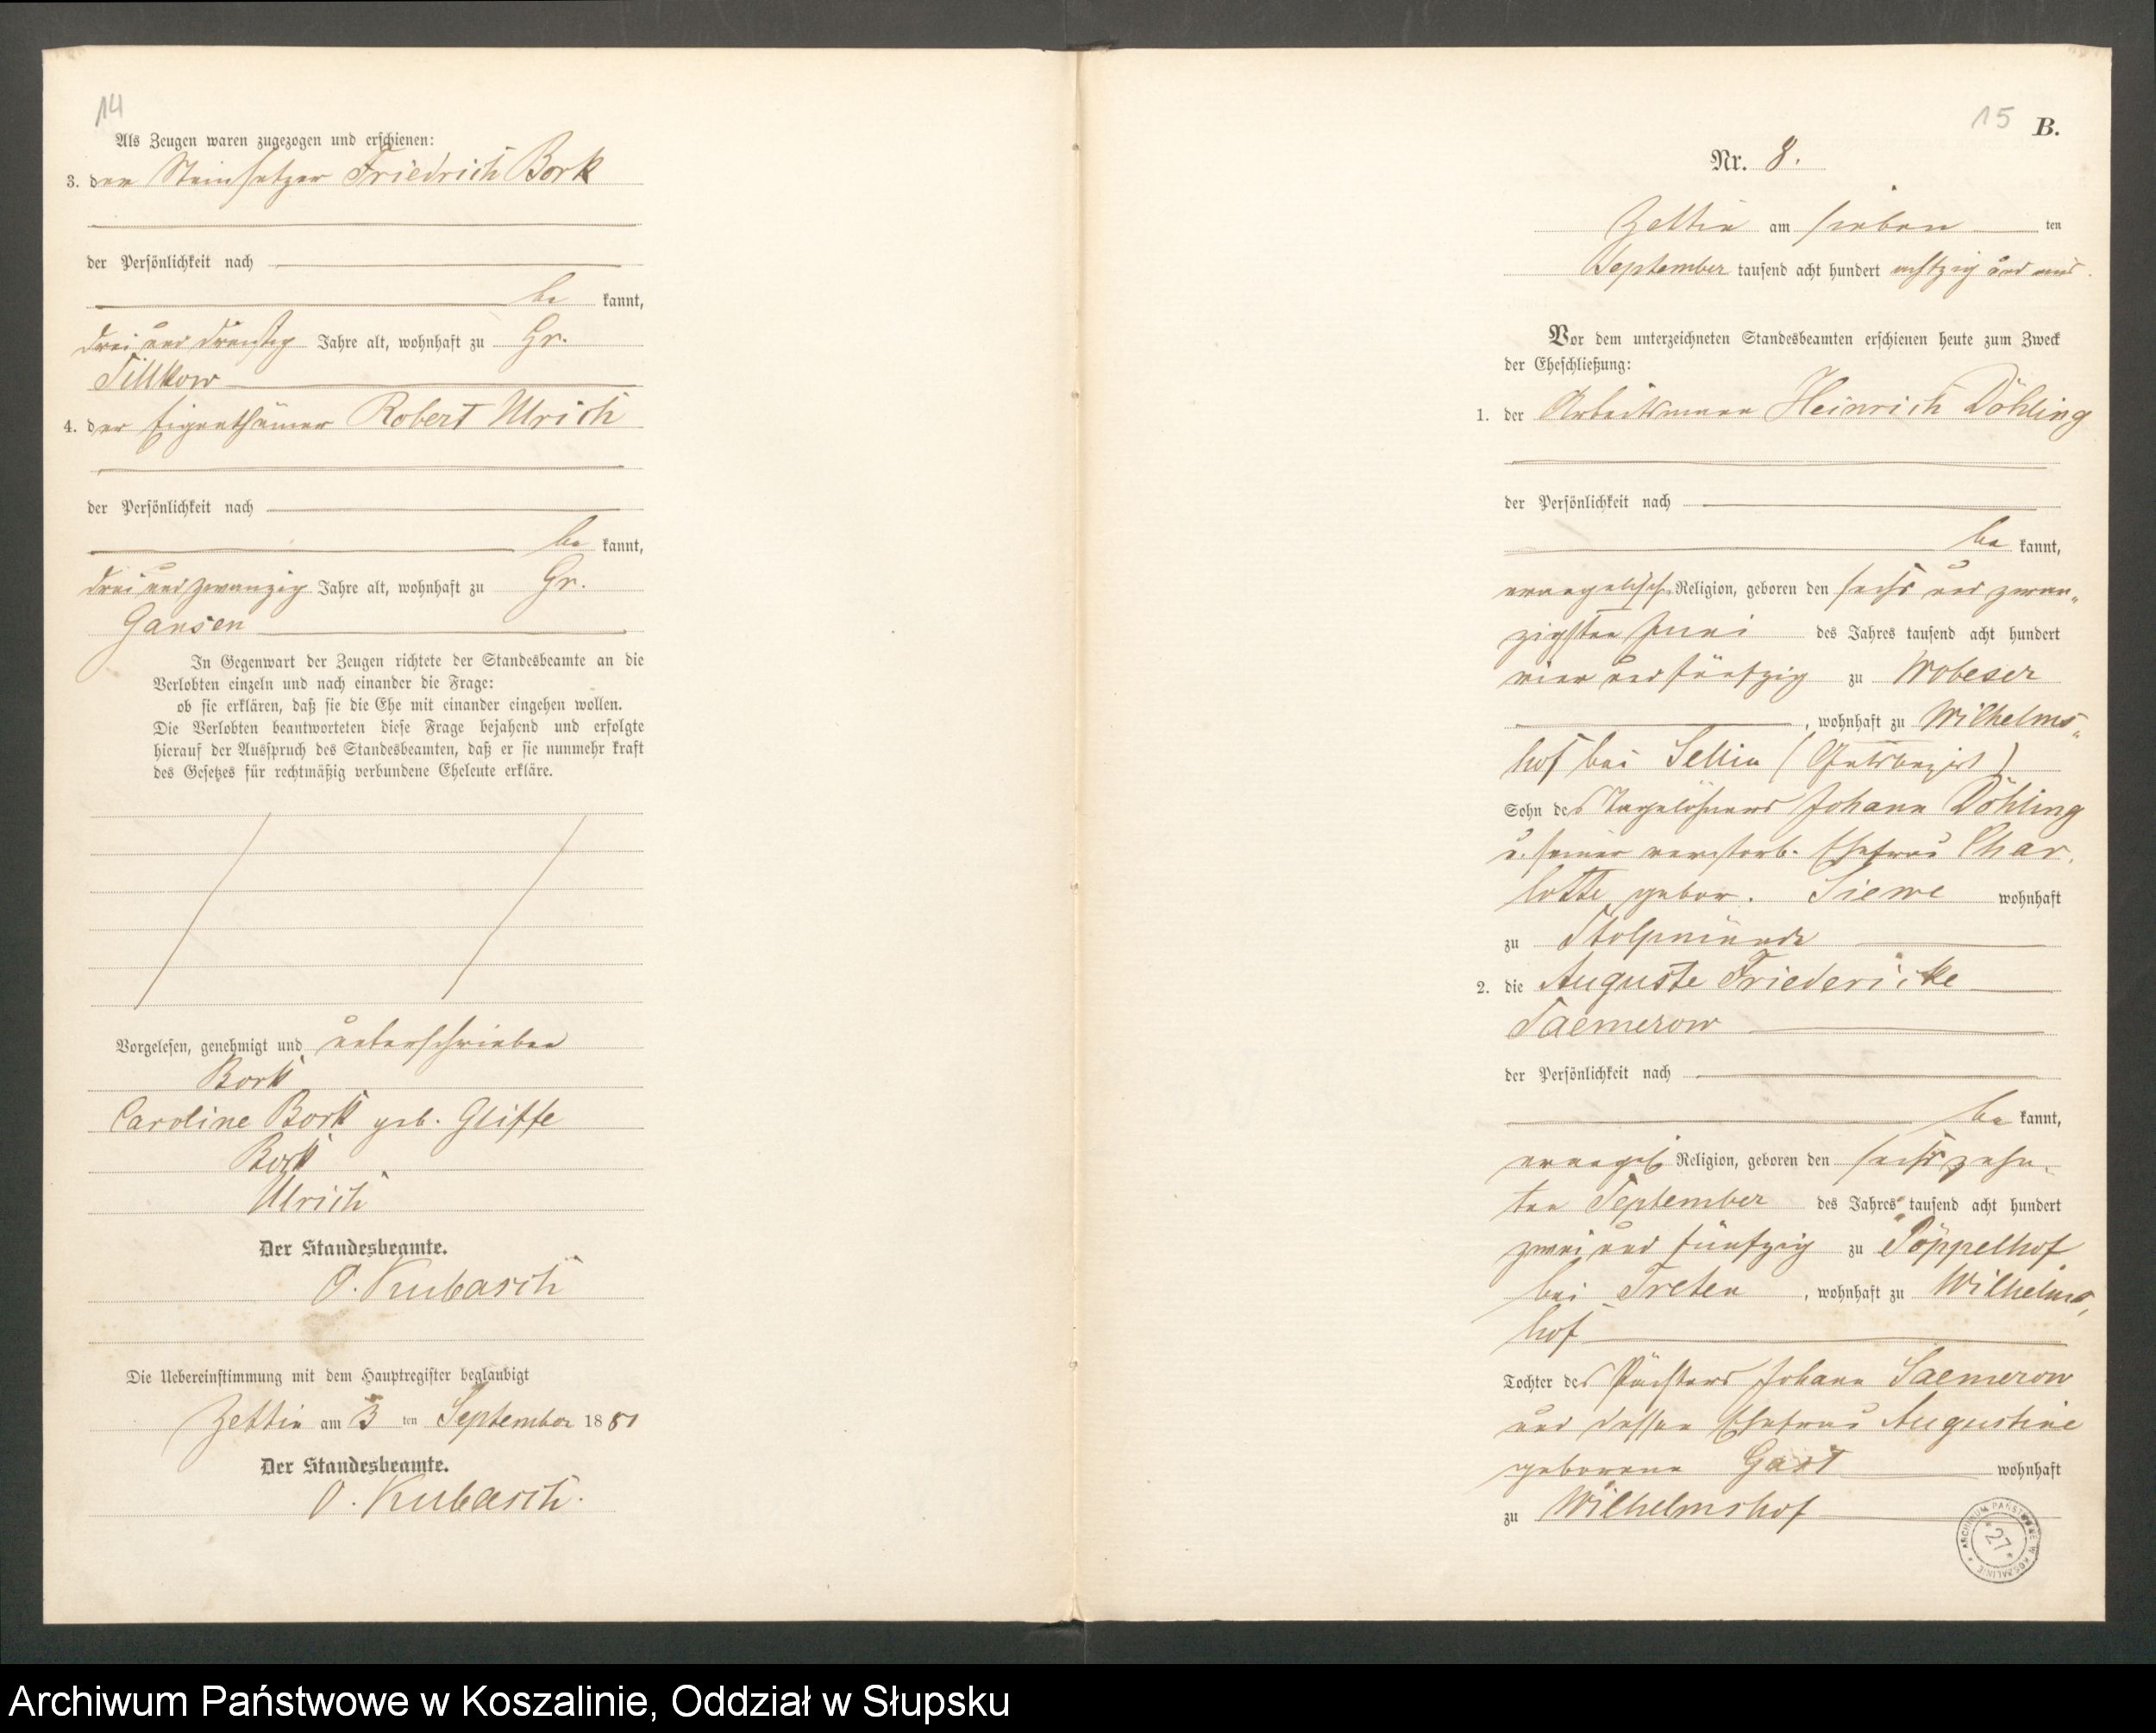 14
Als Zeugen waren zugezogen und erschienen:
3. der Steinsetzer Friedrich Bork
der Persönlichkeit nach
be kannt,
drei und dreißig Jahre alt, wohnhaft zu Gr.
Silkow
4. der Eigenthümer Robert Ulrich
der Persönlichkeit nach
be kannt,
drei und zwanzig Jahre alt, wohnhaft zu Gr.
Gansen
In Gegenwart der Zeugen richtete der Standesbeamte an die
Verlobten einzeln und nach einander die Frage:
ob sie erklären, daß sie die Ehe mit einander eingehen wollen.
Die Verlobten beantworteten diese Frage bejahend und erfolgte
hierauf der Ausspruch des Standesbeamten, daß er sie nunmehr kraft
des Gesetzes für rechtmäßig verbundene Eheleute erkläre.
Vorgelesen, genehmigt und unterschrieben
Bork
Caroline Bork geb. Gliffe
Bork
Ulrich
Der Standesbeamte.
O. Kubasch
Die Uebereinstimmung mit dem Hauptregister beglaubigt
Zettin am 3 ten September 18 81
Der Standesbeamte.
O. Kubasch.
15 B.
Nr. 8.
Zettin am sieben ten
September tausend acht hundert achtzig und eins.
Vor dem unterzeichneten Standesbeamten erschienen heute zum Zweck
der Eheschließung:
1. der Arbeitsmann Heinrich Döhling
der Persönlichkeit nach
be kannt,
evangelisch Religion, geboren den sechs und zwan„
zigsten Juni des Jahres tausend acht hundert
vier und fünfzig zu Wobeser
, wohnhaft zu Wilhelms„
hof bei Sellin (Gutsbezirk)
Sohn des Tagelöhners Johann Döhling
u. seiner verstorb. Ehefrau Char,
lotte gebor. Siewe wohnhaft
zu Stolpmünde
2. die Auguste Friedericke
Saemerow
der Persönlichkeit nach
be kannt,
evangel. Religion, geboren den sechszehn,
ten September des Jahres tausend acht hundert
zwei und fünfzig zu Pöppelhof
bei Treten, wohnhaft zu Wilhelms,
hof
Tochter des Pächters Johann Saemerow
und dessen Ehefrau Augustine
geborene Gast wohnhaft
zu Wilhelmshof
ARCHIWUM PAŃSTWOWE W KOSZALINIE
27
Archiwum Państwowe w Koszalinie, Oddział w Słupsku